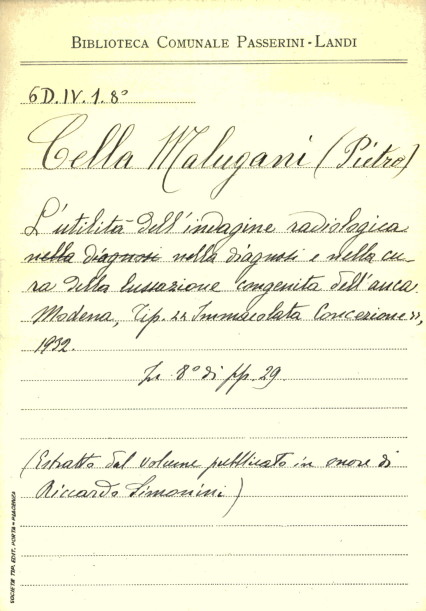 BIBLIOTECA COMUNALE PASSERINI-LANDI
6D.IV.1.8°
Cella Malugani (Pietro)
L'utilità dell'indagine radiologica
nella diagnosi nella diagnosi e nella cu-
ra della lussazione congenita dell'anca
Modena, Tip. << Immacolata Concezione >>,
1932.
In 8° di pp. 29
(Estratto dal volume pubblicato in onore di
Riccardo Simonini)
SOCIETÀ TIP. EDIT. PORTA - PIACENZA